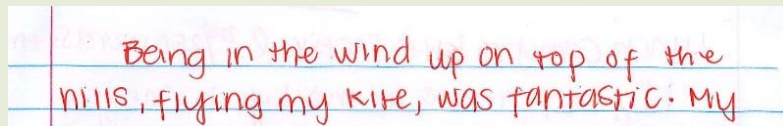 Being in the wind up on top of the
hills, flying my kite, was fantastic. My